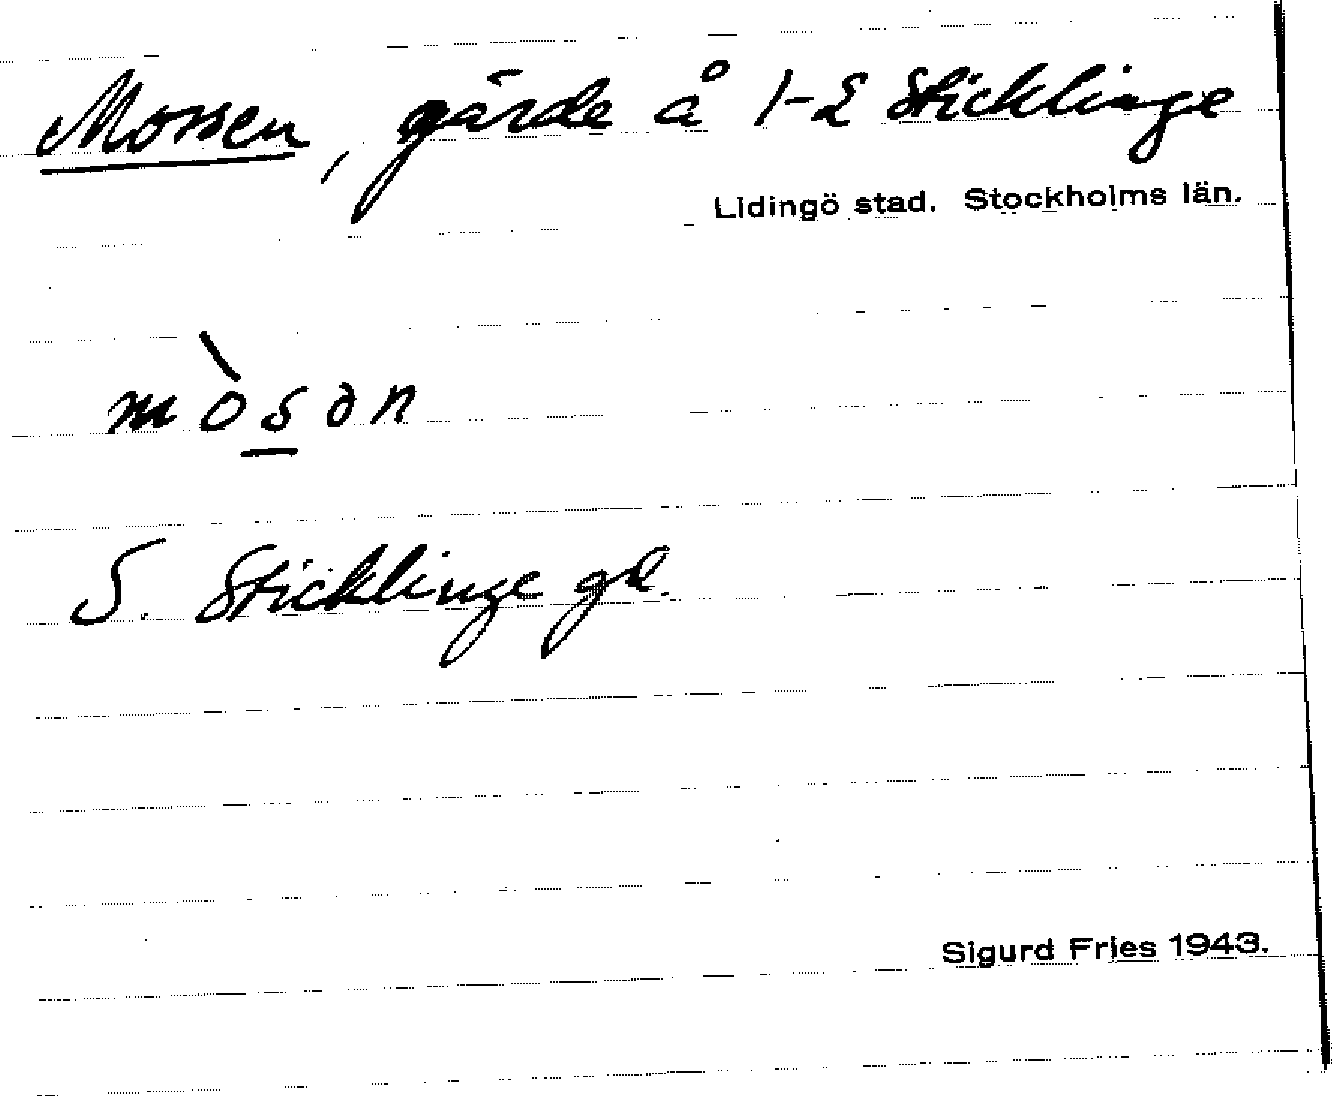 Mossen, gärde å 1-2 Sticklinge
Lidingö stad. Stockholms län.
mòsən
S. Sticklinge gd.
Sigurd Fries 1943.